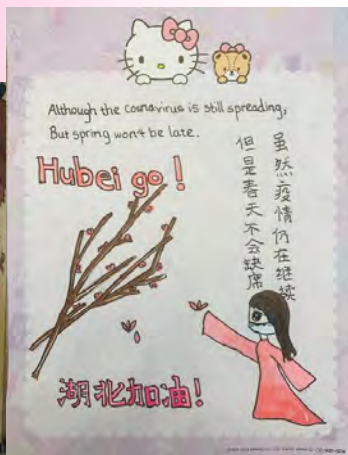 Although the coronavirus is still spreading,
But spring won't be late.
Hubei go!
虽然疫情仍在继续
但是春天不会缺席
湖北加油!